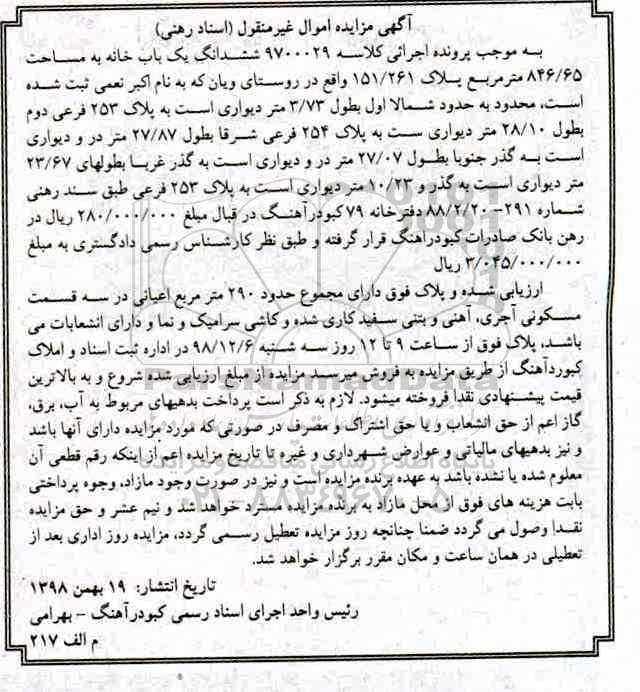 آگهی مزایده اموال غیرمنقول (اسناد رهنی)
به موجب پرونده اجرائی کلاسه ۹۷۰۰۰۲۹ ششدانگ یک باب خانه به مساحت
۸۴۶/۶۵ مترمربع پلاک ۱۵۱/۲۶۱ واقع در روستای ویان که به نام اکبر نعمی ثبت شده
است، محدود به حدود شمالا اول بطول ۳/۷۳ متر دیواری است به پلاک ۲۵۳ فرعی دوم
بطول ۲۸/۱۰ متر دیواری ست به پلاک ۲۵۴ فرعی شرقا بطول ۲۷/۸۷ متر در و دیواری
است به گذر جنوبا بطول ۲۷/۰۷ متر در و دیواری است به گذر غربا بطولهای ۲۳/۶۷
متر دیواری است به گذر و ۱۰/۲۳ متر دیواری است به پلاک ۲۵۳ فرعی طبق سند رهنی
شماره ۲۹۱-۸۸/۲/۲۰ دفترخانه ۷۹ کبودرآهنگ در قبال مبلغ ۲۸۰/۰۰۰/۰۰۰ ریال در
رهن بانک صادرات کبودراهنگ قرار گرفته و طبق نظر کارشناس رسمی دادگستری به مبلغ
۳/۰۴۵/۰۰۰/۰۰۰ ریال
ارزیابی شده و پلاک فوق دارای مجموع حدود ۲۹۰ متر مربع اعیانی در سه قسمت
مسکونی آجری، آهنی و بتنی سفید کاری شده و کاشی سرامیک و نما و دارای انشعابات می
باشد، پلاک فوق از ساعت ۹ تا ۱۲ روز سه شنبه ۹۸/۱۲/۶ در اداره ثبت اسناد و املاک
کبوردآهنگ از طریق مزایده به فروش میرسد مزایده از مبلغ ارزیابی شده شروع و به بالاترین
قیمت پیشنهادی نقدا فروخته میشود. لازم به ذکر است پرداخت بدهیهای مربوط به آب، برق،
گاز اعم از حق انشعاب و یا حق اشتراک و مصرف در صورتی که مورد مزایده دارای آنها باشد
و نیز بدهیهای مالیاتی و عوارض شهرداری و غیره تا تاریخ مزایده اعم از اینکه رقم قطعی آن
معلوم شده یا نشده باشد به عهده برنده مزایده است و نیز در صورت وجود مازاد، وجوه پرداختی
بابت هزینه های فوق از محل مازاد به برنده مزایده مسترد خواهد شد و نیم عشر و حق مزایده
نقدا وصول می گردد ضمنا چنانچه روز مزایده تعطیل رسمی گردد، مزایده روز اداری بعد از
تعطیلی در همان ساعت و مکان مقرر برگزار خواهد شد.
تاریخ انتشار: ۱۹ بهمن ۱۳۹۸
رئیس واحد اجرای اسناد رسمی کبودرآهنگ - بهرامی
م الف ۲۱۷
ParsNamadData
پایگاه اطلاع رسانی مناقصه و مزایده
۰۲۱-۸۸۳۴۹۶۷۰-۵